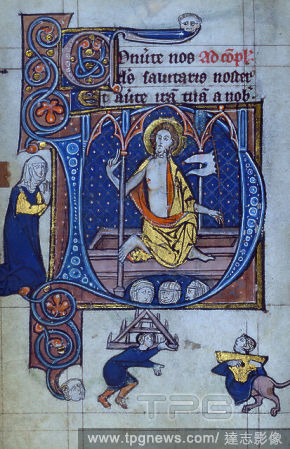 Conũte nos Ad cõpl'
ds̃ salutaris noster
Et aũte irã tuã a nob'
TPG
www.tpgnews.com / 達志影像